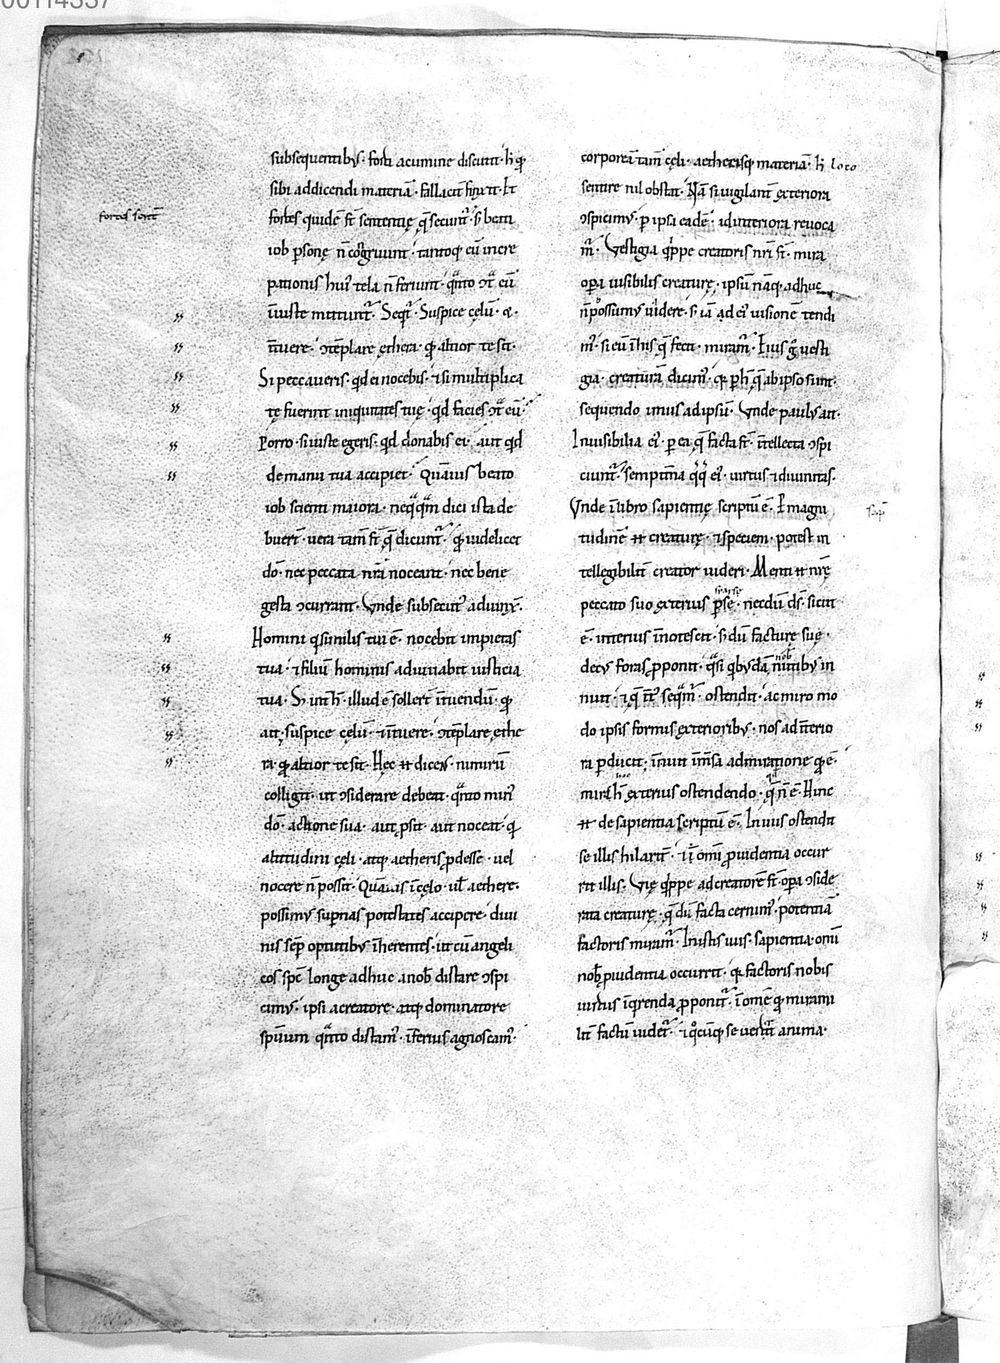 00114337
subsequentibꝰ· forti acumine discutit· h̄ qꝫ
sibi addicendi materiā· fallacit̄ ī̄uenit· Et
fortes sentē
fortes quidē st̄ sententię q̄ secunt̄· s; beati
iob psonę n̄ cōgruunt· tantoqꝫ eū incre
pationis huiꝰ tela n̄ feriunt· q̄nto ↄt̄ eū
iniuste mittunt̄· Seqt̄· Suspice cęlū· ⁊·
ī̄tuere· ↄtēplare ęthera· qđ altior te sit·
Si peccaueris· qđ ei nocebis· ⁊ si multiplica
tę fuerint iniquitates tuę· qđ facies ↄt̄ eū·
Porro· si iuste egeris· qđ donabis ei· aut qđ
de manu tua accipiet· Quāuis beato
iob scienti maiora· neq̄q̄m dici ista de
buerī· uera tam̄ st̄ q̄ dicunt̄· qđ uidelicet
dō· nec peccata nrā noceant· nec bene
gesta ↄcurrant· Vnde subsecutꝰ adiunx̄·
Homini q̇ similis tui ē· nocebit impietas
tua· ⁊ filiū hominis adiuuabit iusticia
tua· S; int̄ h̄· illud ē sollert̄ ī̄tuendū· qđ
ait· suspice cęlū· ⁊ī̄tuere· ↄtēplare ęthe
ra· qđ altior te sit· Hęc .n. dicens· nimirū
colligit· ut ↄsiderare debeat· q̄nto minꝰ
dō· actione sua· aut psit· aut noceat· q̇
altitudini cęli· atqꝫ aetheris pdesse· uel
nocere n̄ possit· Quāuis ī cęlo· ul̄ aethere·
possimꝰ supnas potestates accipere· diui
nis sēp optutibꝰ inherentes· ut cū angeli
cos spc̄ longe adhuc a nob̄ distare ↄspi
cimꝰ· ipsi a creatore· atqꝫ dominatore
spirituum q̄nto distam̄· inferius agnoscam̄·
corporeā tam̄ cęli· aetherisqꝫ materiā· h̄ loco
sentire nil obstat· Nā si uigilant̄ exteriora
ↄspicimꝰ· p ipsa eadē· ad interiora reuoca
m̄· Vestigia q̇ppe creatoris nrī st̄· mira
opera uisibilis creaturę· ipsū nāqꝫ adhuc
n̄ possumꝰ uidere· s; iā ad eiꝰ uisionē tendi
mꝰ· si eū ī his q̄ fecit· miram̄· Eius g̊ uesti
gia· creaturā dicimꝰ· qꝫ p h̄ q̄ ab ipso sunt·
sequendo imus ad ipsū· Vnde paulꝰ ait·
Inuisibilia eiꝰ· p ea q̄ facta st̄· ī̄tellecta ↄspi
ciunt̄· sempit̄na q̇q; eiꝰ· uirtus ⁊ diuinitas·
Vnde ī libro sapientię scriptū ē· E magni
tudinē .n. creaturę· ⁊ speciem· potest in
tellegibilit̄ creator uideri· Menti .n. nrę
peccato suo exterius sparsę· necdū dś· sicut
ē· interius ī̄notescit· s; dū facturę suę·
decꝰ foras pponit· q̄si q̇bꝰdā nutibꝰ nob̄ in
nuit· ⁊ q̄ int̄ seqm̄· ostendit· ac miro mo
do ipsis formis exterioribꝰ· nos ad ī̄terio
ra pducit· innuit immsa admiratione qđ ē·
mira h̄ exterius ostendendo· q̄ n̄ ē· Hinc
.n. de sapientia scriptū ē· In uiis ostendit
se illis hilarit̄· ⁊ ī omi prouidentia occur
rit illis· Vię q̇ppe ad creatorē st̄· opa ↄside
rata creaturę· q̄ dū facta cernimꝰ· potentiā
factoris miram̄· In istis uiis· sapientia· omi
nob̄ puidentia occurrit· qꝫ factoris nobis
uirtus inqrenda pponit̄· ī ome qđ mirabi
lit̄ factū uidet̄· ⁊ q̊cūqꝫ se uertit anima·